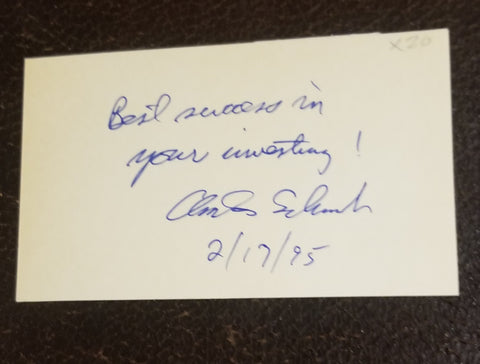 x20
Best success in
your investing!
Charles Schwab
2/17/95